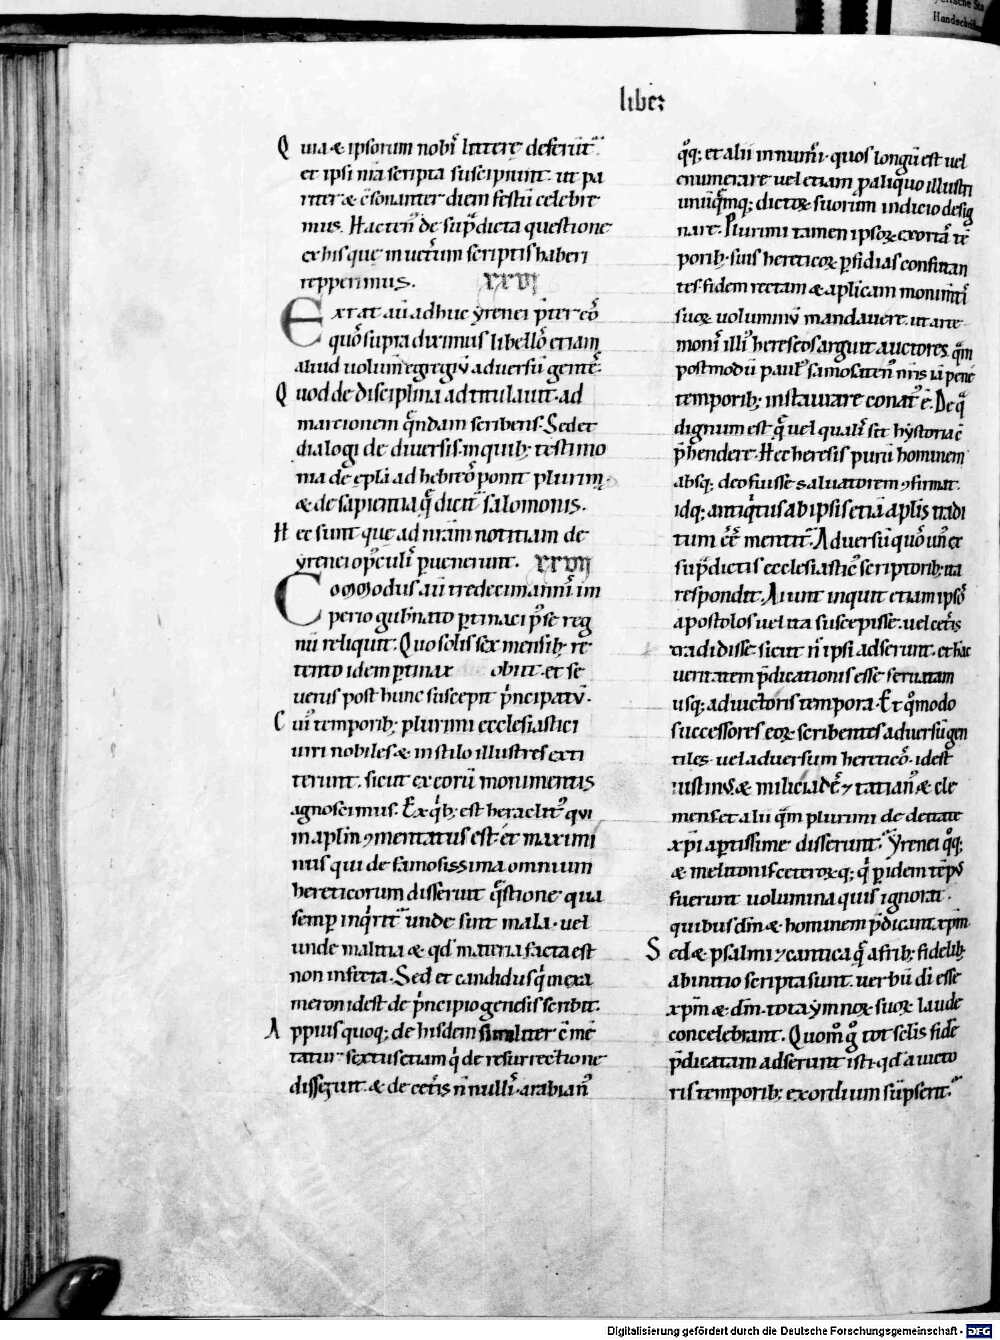 liber
Quia & ipsorum nob̄ littere deferūt᷑
et ipsi n̄ra scripta suscipiunt. ut pa
riter & c̄sonanter diem festū celebre
mus. Hacten᷒ de sup̄dicta questione
ex his que in ueterum scriptis haberi
repperimus. xxvi
Extat aū adhuc yrenei p̄ter eō
quō supra diximus libellō etiam
aliud uolum̄ egregiū aduersū gente᷑
Quod de disciplina adtitulauit. ad
marcionem quendam scribens. Sed et
dialogi de diuersis. in quib; testimo
nia de epl̄a ad hebreō ponit plurim᷒.
& de sapientia q̄ dicit᷑ salomonis.
Hec sunt que ad n̄ram notitiam de
yrenei op᷒culi᷑ puenerunt. xxvii
Commodus. aū tredecim anni᷑ im
perio gub̄nato ptinaci p̄se reg
nū reliquit. Quo solis sex mensib; re
tento idem ptinax obiit. et se
uerus post hunc suscepit p̄ncipatū.
Cui᷒ temporib; plurimi ecclesiastici
uiri nobiles & in stilo illustres exti
terunt. sicut ex eorū monumentis
agnoscimus. Ex qib; est heraclit᷒ qui
in aplm̄ ꝯmentatus est. et maximi
nus qui de famosissima omnium
hereticorum disserunt q̄stione qua
semp inqirit᷑ unde sint mala. uel
unde malitia & qd᷑ materia facta est
non infecta. Sed et candidus qi in exa
meron id est de p̄ncipio genesis scribit.
Appius quoq; de hisdem similiter c̄me
tatur sextus etiam qi de resurrectione
disserunt. & de cetis n̄ nulli᷑. arabian᷒
qōq; et alii innumi᷑. quos longū est uel
enumerare uel etiam p aliquo illustri
uniūcui᷒mq; dictoꝝ suorum indicio desig
nare. Plurimi tamen ipsoꝝ exortā tē
porib; suis hereticoꝝ pfidias confutan
tes. fidem rectam & apl̄icam monimti᷑
suoꝝ uoluminū mandauere. ut arte
moni᷑ illi᷒ hereseos arguit auctores. qm̄
postmodū paul᷒ samosaten᷒ nr̄is iā pene
temporib; instaurare conat᷒ ē. De q̄
dignum est q̄ uel quali᷑ sit hystoria c̄
p̄hendere. Hec heresis purū hominem
absq; deo fuisse saluatorem ꝯfirmat.
idq; antiqitus ab ipsis etiā apl̄is tradi
tum eē mentit᷑. Aduersū quō un᷒ ex
sup̄dictis ecclesiastic᷒ scriptorib; ita
respondit. Aiunt inquit etiam ipsō
apostolos uel ita suscepisse. uel cetīs
tradidisse sicut n̄ ipsi adserunt. et hac
ueritatem p̄dicationis esse seruatam
usq; ad uictoris tempora. Et qōmodo
successores eoꝝ scribentes aduersū gen
tiles. uel aduersum heretico᷑. id est
iustin᷒. & miliciade᷑ ⁊ tatian᷒ & cle
mens et alii qm̄ plurimi de deitate
xp̄i aptissime disserunt᷑. Yrenei qōq;
& melitonis ceteroꝝq; qi pidem tēp᷒
fuerunt uolumina quis ignorat.
quibus dm̄ & hominem p̄dicant xp̄m.
Sed & psalmi ⁊ cantica q̄ a frib; fidelib;
ab initio scripta sunt. uerbū di esse
xp̄m & dm̄. tota ymnoꝝ suoꝝ laude
concelebrant. Quom̄ gō tot sclis fide
p̄dicatam adserunt isti. qd᷑ a uicto
ris temporib; exordium sūpserit᷑
Digitalisierung gefördert durch die Deutsche Forschungsgemeinschaft - DFG